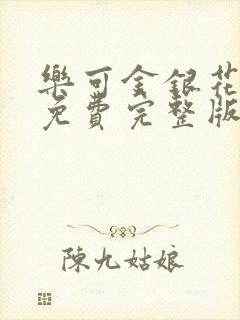 樂可金銀花
免費完整版
陳九姑娘